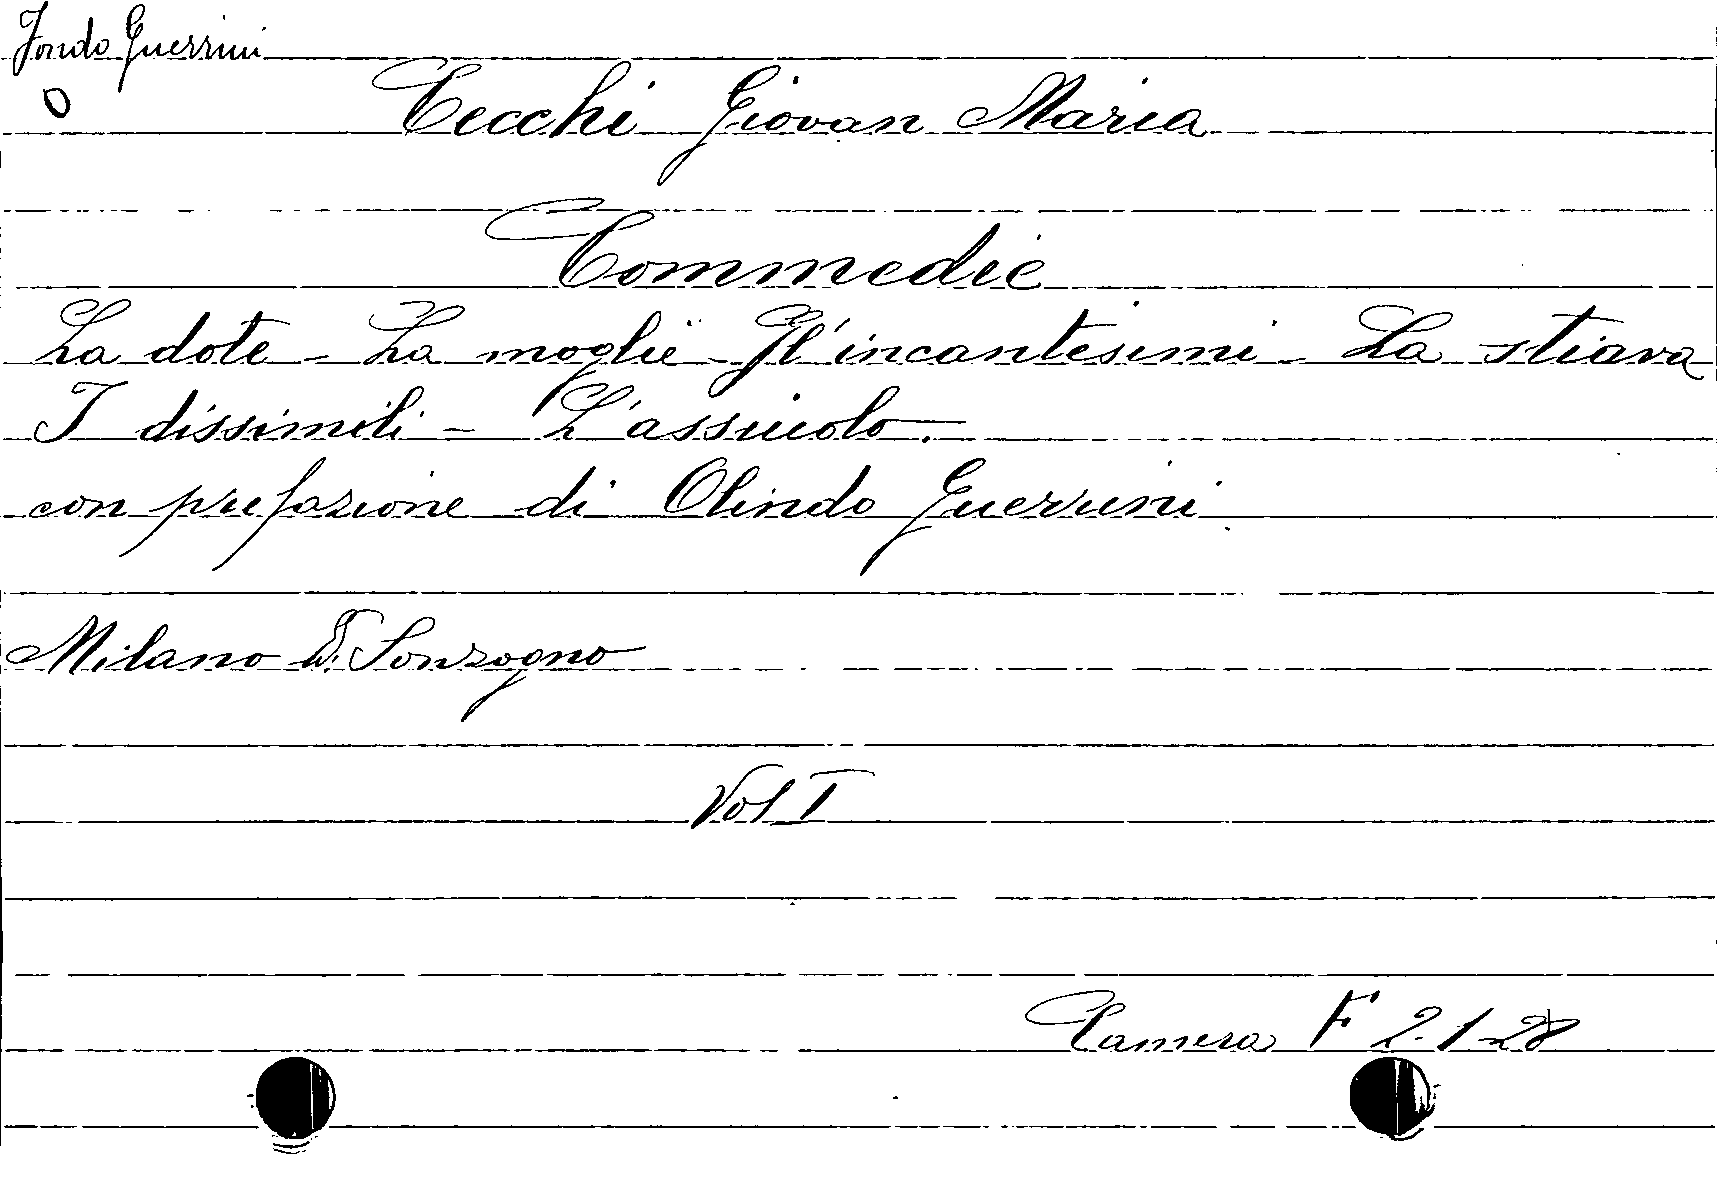 Fondo Guerrini
O
Cecchi Giovan Maria
Commedie
La dote - La moglie - Gl'incantesimi - La stiava
I dissimili - L'assiuolo.
con prefazione di Olindo Guerrini
Milano E. Sonzogno
Vol I
Camera F 2.1-28